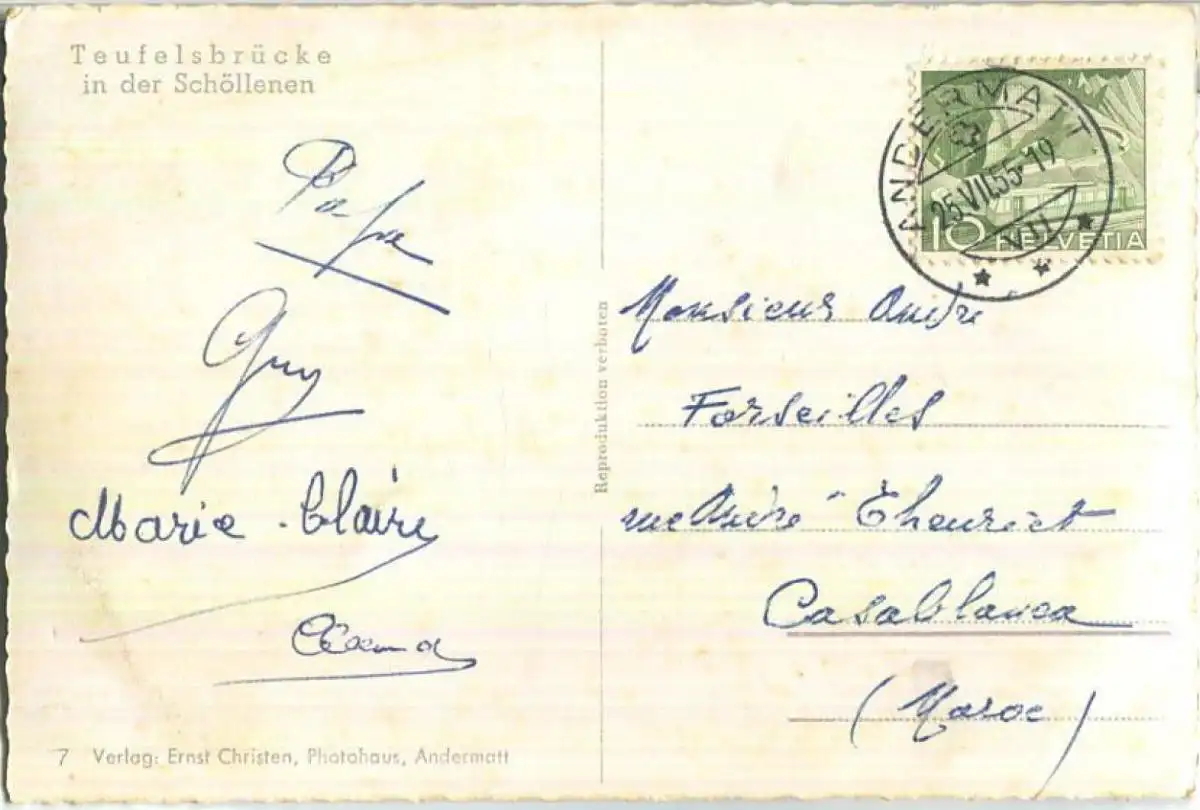 Teufelsbrücke
in der Schöllenen
Papa
Guy
Marie-Claire
7 Verlag: Ernst Christen, Photohaus, Andermatt
Reproduktion verboten
ANDERMATT
25.VII.55-19
VII
10 HELVETIA
Monsieur André
Forseilles
Casablanca
(Maroc)